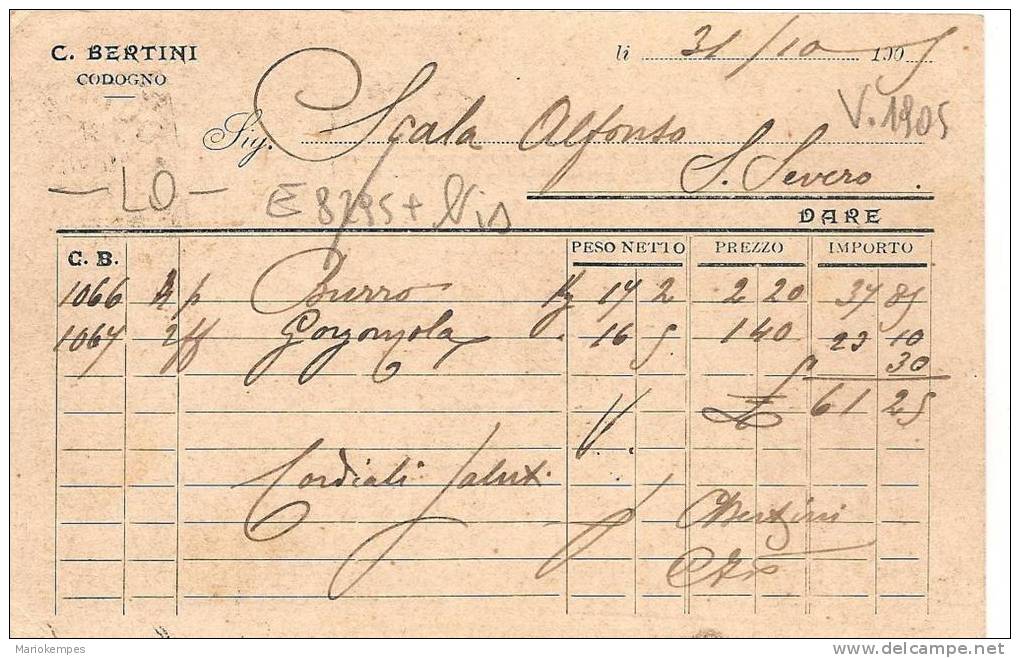 C. BERTINI
CODOGNO
li 31/10 1905
V. 1905
Sig. Scala Alfonso
S. Severo
- LO -
E 8295 +
DARE
C. B. PESO NETTO PREZZO IMPORTO
1066 Burro Kg 17 2 2 20 37 85
1067 2 ff Gorgonzola 16 5 1 40 23 10
30
£ 61 25
Cordiali Saluti
CBertini
Mariokempes
delcampe.net